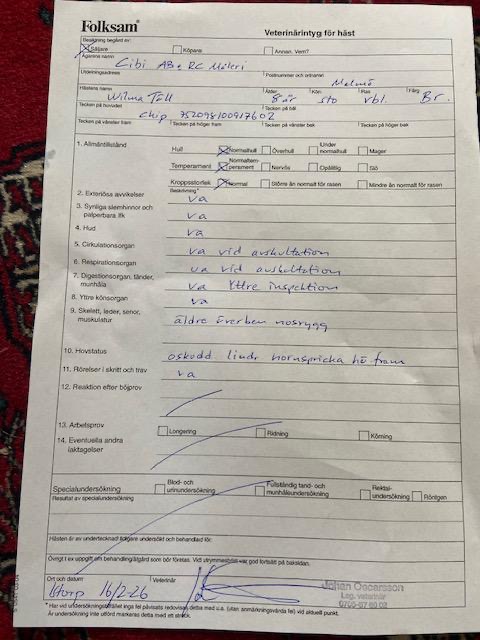 Folksam
Veterinärintyg för häst
Besiktning begärd av:
Säljare Köpare Annan. Vem?
Ägarens namn
Cibi AB & RC Måleri
Utdelningsadress Postnummer och ortnamn
Malmö
Hästens namn Ålder Kön Ras Färg
Wilma Tåll 8 år sto vbl. Br.
Tecken på huvudet Tecken på bål
chip 752098100917602
Tecken på vänster fram Tecken på höger fram Tecken på vänster bak Tecken på höger bak
1. Allmäntillstånd
Hull Normalhull Överhull Under normalhull Mager
Temperament Normaltemperament Nervös Opålitlig Slö
Kroppsstorlek Normal Större än normalt för rasen Mindre än normalt för rasen
Beskrivning *
2. Exteriösa avvikelser ua
3. Synliga slemhinnor och palperbara lfk ua
4. Hud ua
5. Cirkulationsorgan ua vid auskultation
6. Respirationsorgan ua vid auskultation
7. Digestionsorgan, tänder, munhåla ua Yttre inspektion
8. Yttre könsorgan ua
9. Skelett, leder, senor, muskulatur äldre överben nosrygg
10. Hovstatus oskodd. lindr hornspricka hö fram
11. Rörelser i skritt och trav ua
12. Reaktion efter böjprov
13. Arbetsprov Longering Ridning Körning
14. Eventuella andra iakttagelser
Specialundersökning Blod- och urinundersökning Fullständig tand- och munhåleundersökning Rektalundersökning Röntgen
Resultat av specialundersökning
Hästen är av undertecknad tidigare undersökt och behandlad för:
Övrigt t ex uppgift om behandling/åtgärd som bör företas. Vid utrymmesbrist var god fortsätt på baksidan.
Ort och datum Veterinär
16/2-26
Johan Oscarsson
Leg. veterinär
* Har vid undersökningstillfället inga fel påvisats redovisas detta med u.a. (utan anmärkningsvärda fel) vid aktuell punkt.
Är undersökning inte utförd markeras detta med ett streck.